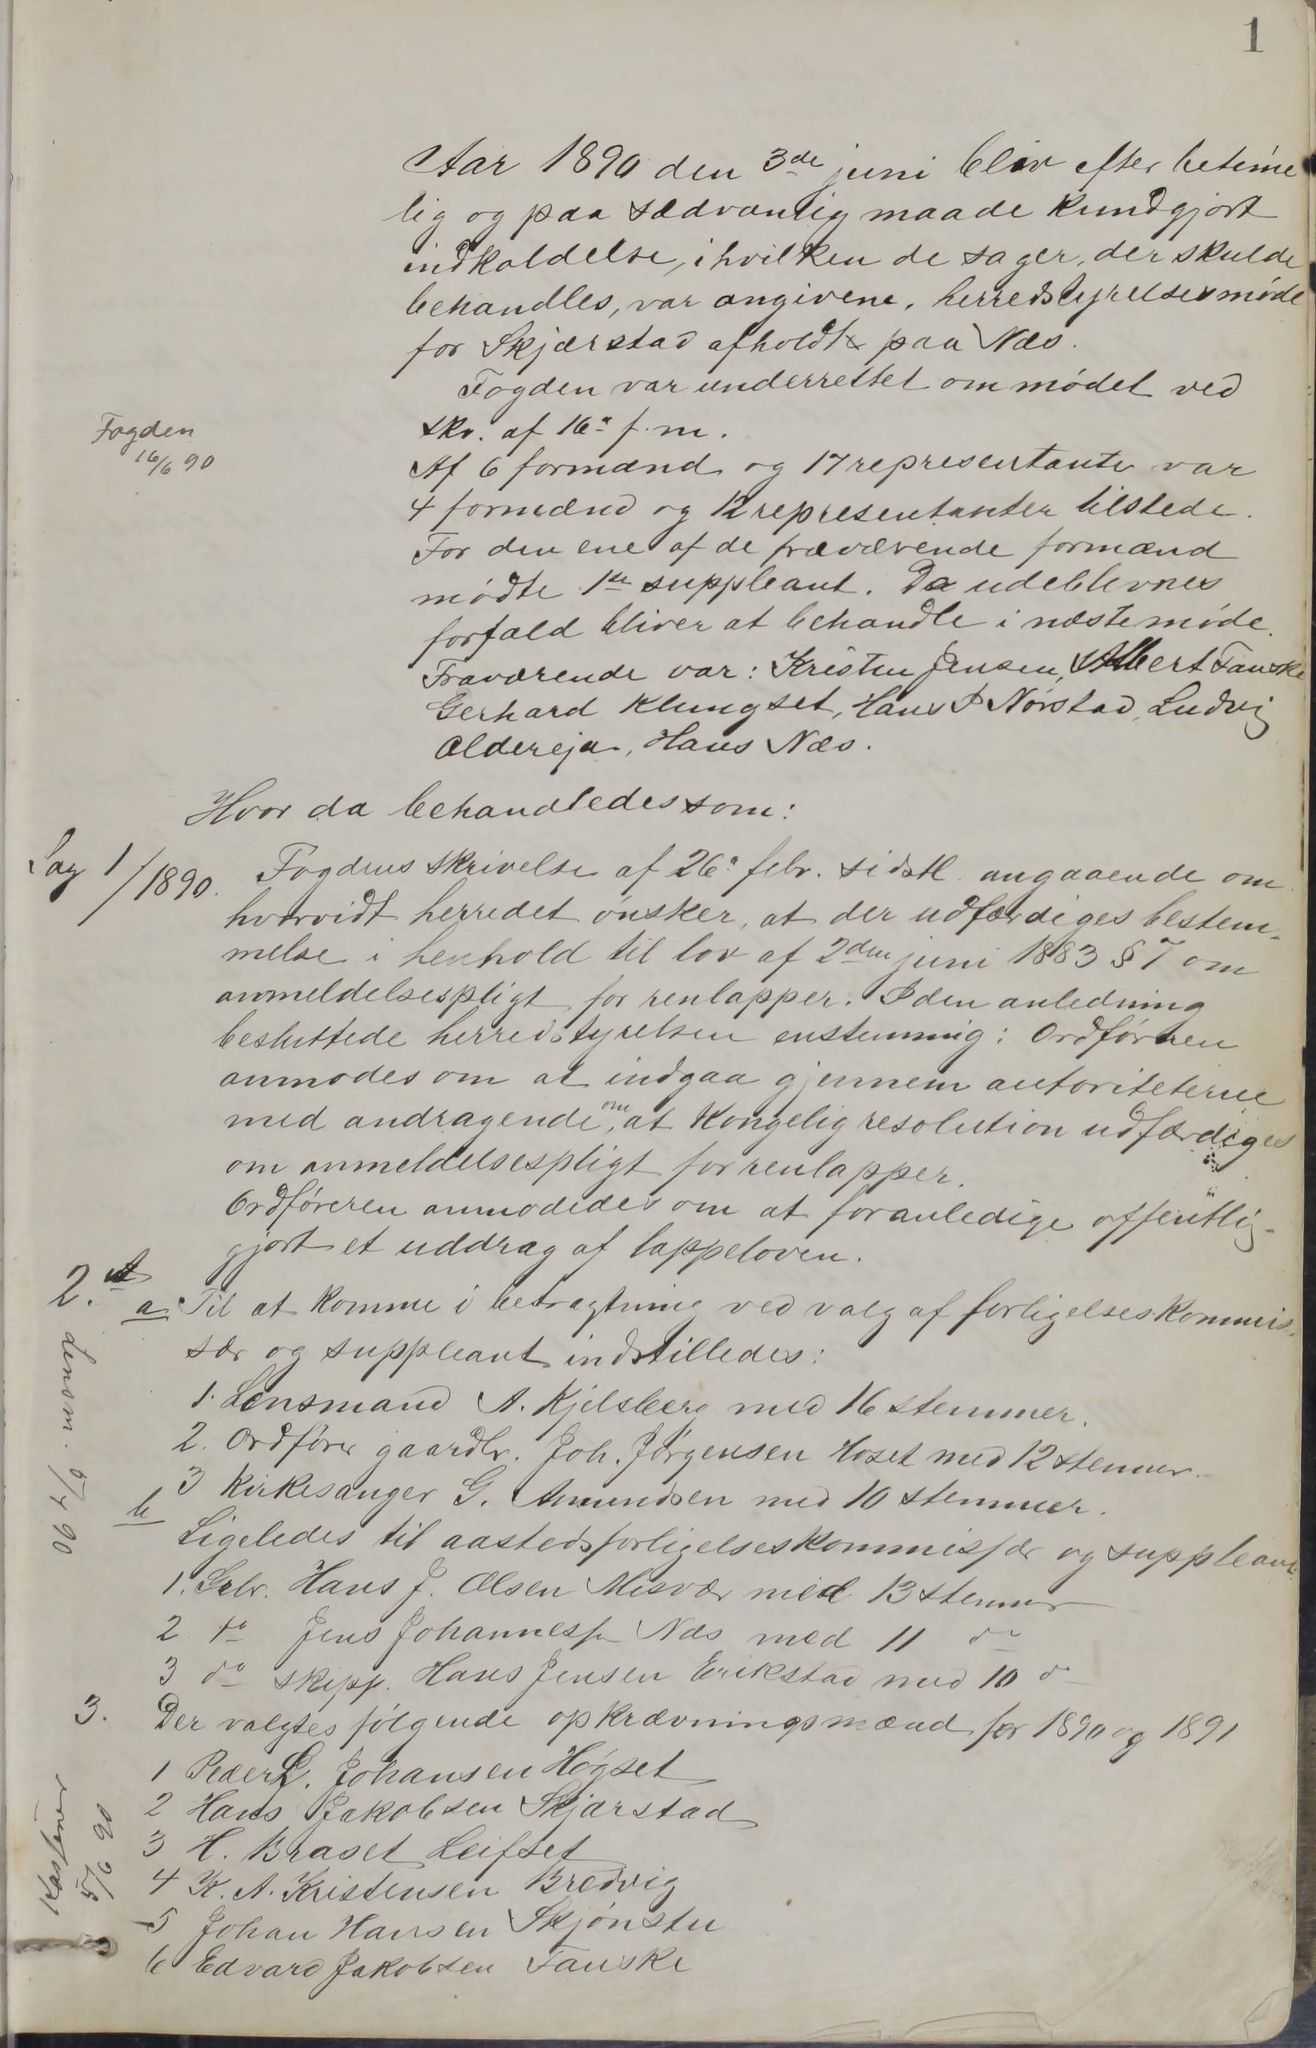 1
Aar 1890 den 3de juni blev efter betime
lig og paa sædvanlig maade kundgjort
indkaldelse, i hvilken de sager, der skulde
behandles, var angivene, herredstyrelsesmøde
for Skjærstad afholdt paa Næs.
Fogden var underrettet om mødet ved
skr. af 16de f. m.
Fogden
16/6 90
Af 6 formænd og 17 representante var
4 formænd og 12 representanter tilstede.
For den ene af de fraværende formænd
mødte 1ste suppleant. De udeblevnes
forfald bliver at behandle i næste møde.
Fraværende var: Kristen Jensen, Albert Fauske
Gerhard Klungset, Hans P Nørstad, Ludvig
Aldereja, Hans Næs.
Hvor da behandledes som:
Sag 1/1890.
Fogdens skrivelse af 26de febr. sidstl. angaaende om
hvorvidt herredet ønsker, at der udfærdiges bestem-
melse i henhold til lov af 2den juni 1883 § 7 om
anmeldelsespligt for renlapper. I den anledning
besluttede herredstyrelsen enstemmig: Ordføreren
anmodes om at indgaa gjennem autoriteterne
med andragende om, at Kongelig resolution udfærdiges
om anmeldelsespligt for renlapper.
Ordføreren anmodedes om at foranledige offentlig-
gjort et uddrag af lappeloven.
2.
a Til at komme i betragtning ved valg af forligelseskommis-
sær og suppleant indstilledes:
1. Lensmand A. Kjelsberg med 16 stemmer.
2. Ordfører gaardbr. Joh. Jørgensen Hoset med 12 stemmer.
3 Kirkesanger G. Amundsen med 10 stemmer.
Lensm. 5/7 90
b
Ligeledes til aastedsforligelseskommissær og suppleant
1. Grbr. Hans J. Olsen Misvær med 13 stemmer
2 do Jens Johanness. Næs med 11 do
3 do skipp. Hans Jensen Erikstad med 10 do
3.
Der valgtes følgende opkrævningsmænd for 1890 og 1891
1 Peder L. Johansen Høgset
2 Hans Jakobsen Skjærstad
3 H. Braset Leifset
4 K. A. Kristensen Bredvig
5 Johan Hansen Skjønstu
6 Edvard Jakobsen Fauske
Kasserer
5/6 90